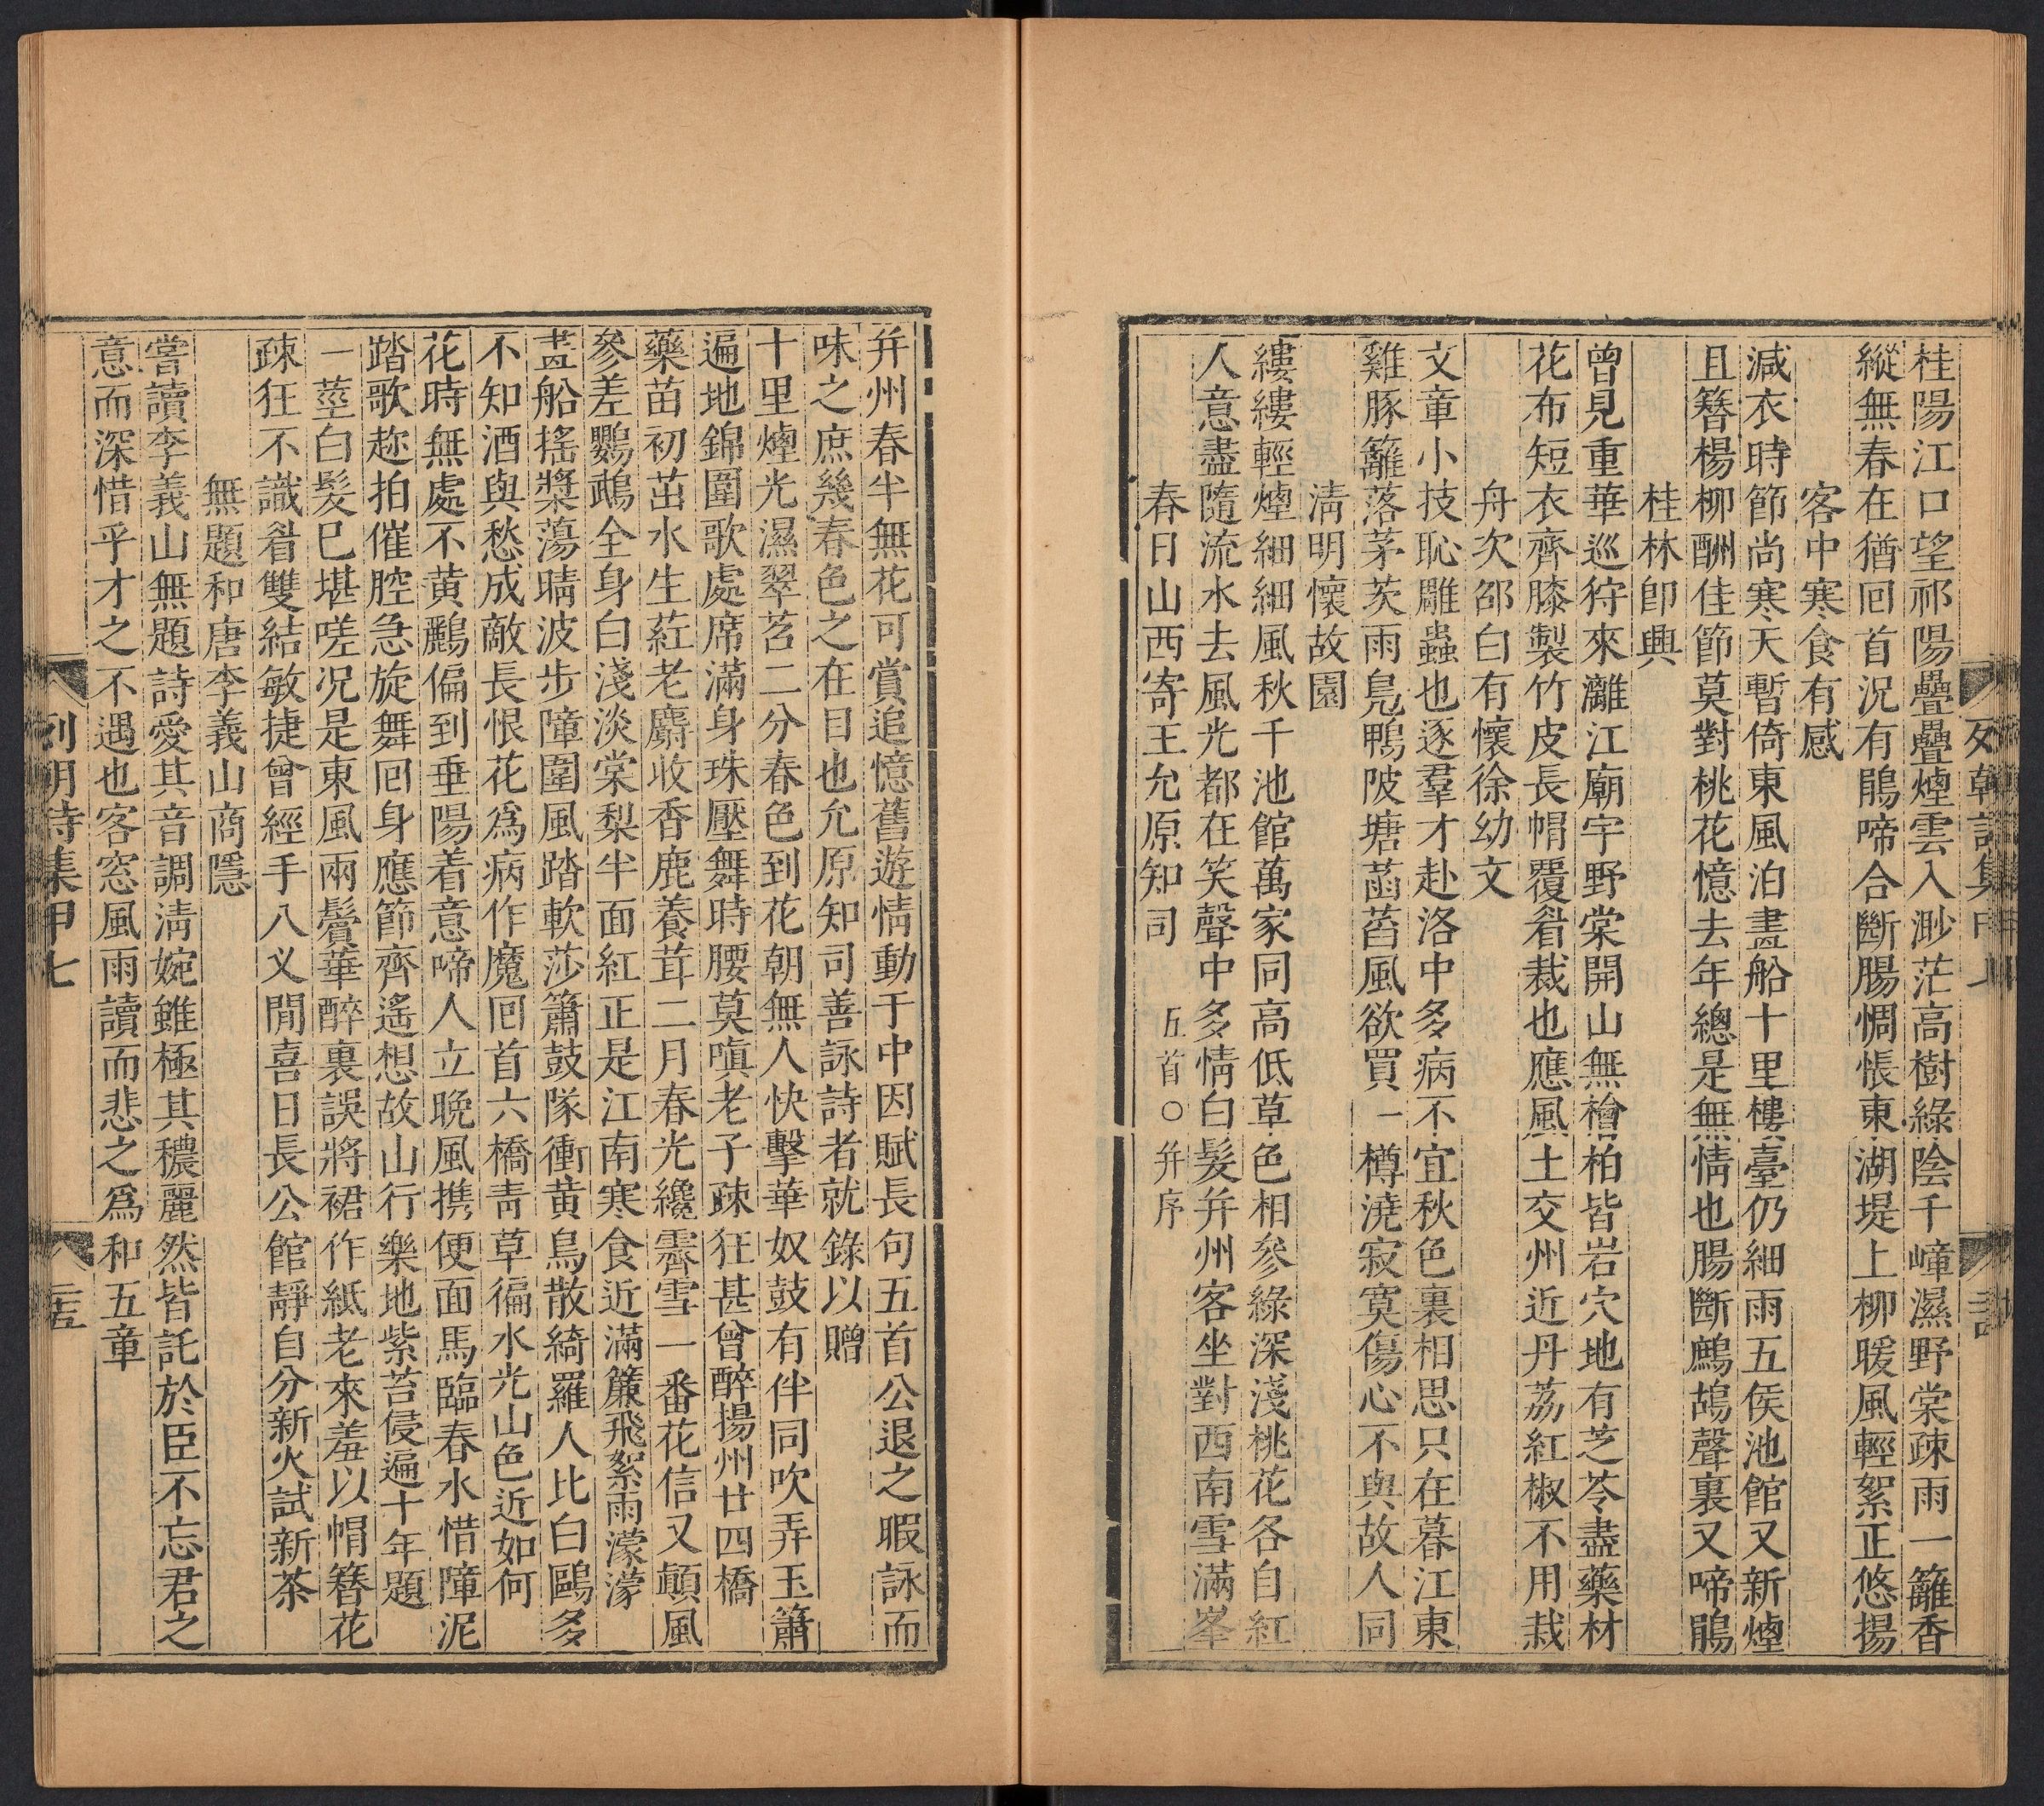 桂陽江口望祁陽疊疊煙雲入渺茫高樹綠陰千嶂濕野棠疎雨一籬香
縱無春在猶回首況有鵑啼合斷腸惆悵東湖堤上柳暖風輕絮正悠揚
客中寒食有感
減衣時節尚寒天暫倚東風泊畫船十里樓臺仍細雨五侯池館又新煙
且簪楊柳酬佳節莫對桃花憶去年總是無情也腸斷鷓鴣聲裏又啼鵑
桂林卽興
曾見重華巡狩來灕江廟宇野棠開山無檜柏皆岩穴地有芝苓盡藥材
花布短衣齊膝製竹皮長帽覆眉裁也應風土交州近丹荔紅椒不用栽
舟次邵白有懷徐幼文
文章小技恥雕蟲也逐羣才赴洛中多病不宜秋色裏相思只在暮江東
雞豚籬落茅茨雨鳧鴨陂塘菡萏風欲買一樽澆寂寞傷心不與故人同
淸明懷故園
縷縷輕煙細細風秋千池館萬家同高低草色相參綠深淺桃花各自紅
人意盡隨流水去風光都在笑聲中多情白髮并州客坐對西南雪滿峯
春日山西寄王允原知司 五首○并序
并州春半無花可賞追憶舊遊情動于中因賦長句五首公退之暇詠而
味之庶幾春色之在目也允原知司善詠詩者就錄以贈
十里煙光濕翠苔二分春色到花朝無人快擊華奴鼓有伴同吹弄玉簫
遍地錦圍歌處席滿身珠壓舞時腰莫嗔老子疎狂甚曾醉揚州廿四橋
藥苗初茁水生葒老麝收香鹿養茸二月春光纔霽雪一番花信又顛風
參差鸚鵡全身白淺淡棠梨半面紅正是江南寒食近滿簾飛絮雨濛濛
畫船搖槳蕩晴波步障圍風踏軟莎簫鼓隊衝黃鳥散綺羅人比白鷗多
不知酒與愁成敵長恨花爲病作魔回首六橋靑草徧水光山色近如何
花時無處不黃鸝偏到垂陽着意啼人立晩風携便面馬臨春水惜障泥
踏歌趂拍催腔急旋舞回身應節齊遙想故山行樂地紫苔侵遍十年題
一莖白髮巳堪嗟況是東風兩鬢華醉裏誤將裙作紙老來羞以帽簪花
疎狂不識眉雙結敏捷曾經手八义閒喜日長公館靜自分新火試新茶
無題和唐李義山商隱
嘗讀李義山無題詩愛其音調淸婉雖極其穠麗然皆託於臣不忘君之
意而深惜乎才之不遇也客窓風雨讀而悲之爲和五章
列朝詩集甲七
二十五